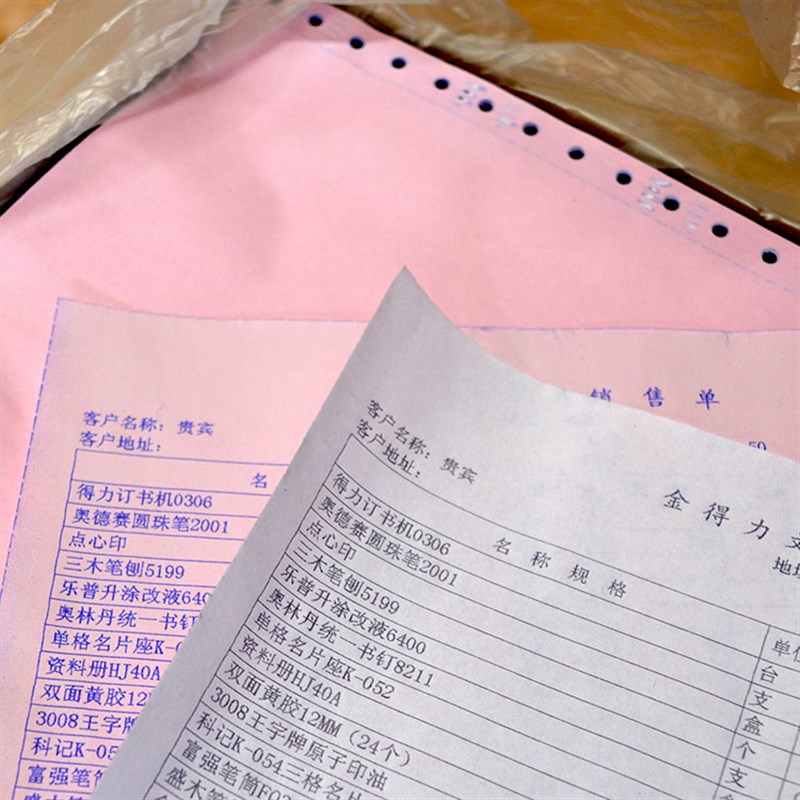 销售单
客户名称：贵宾
客户地址：
名
得力订书机0306
奥德赛圆珠笔2001
点心印
三木笔刨5199
乐普升涂改液640
奥林丹统一书钉
单格名片座K-0
资料册HJ40A
双面黄胶12
3008王字牌
科记K-05
富强笔筒
金得力
客户名称：贵宾
客户地址：
地
名称规格
单位
得力订书机0306
台
奥德赛圆珠笔2001
支
点心印
盒
三木笔刨5199
个
乐普升涂改液6400
支
奥林丹统一书钉8211
盒
单格名片座K-052
个
资料册HJ40A
双面黄胶12MM（24个）
3008王字牌原子印油
科记K-054三格名片
富强笔筒F02
盛木笔筒